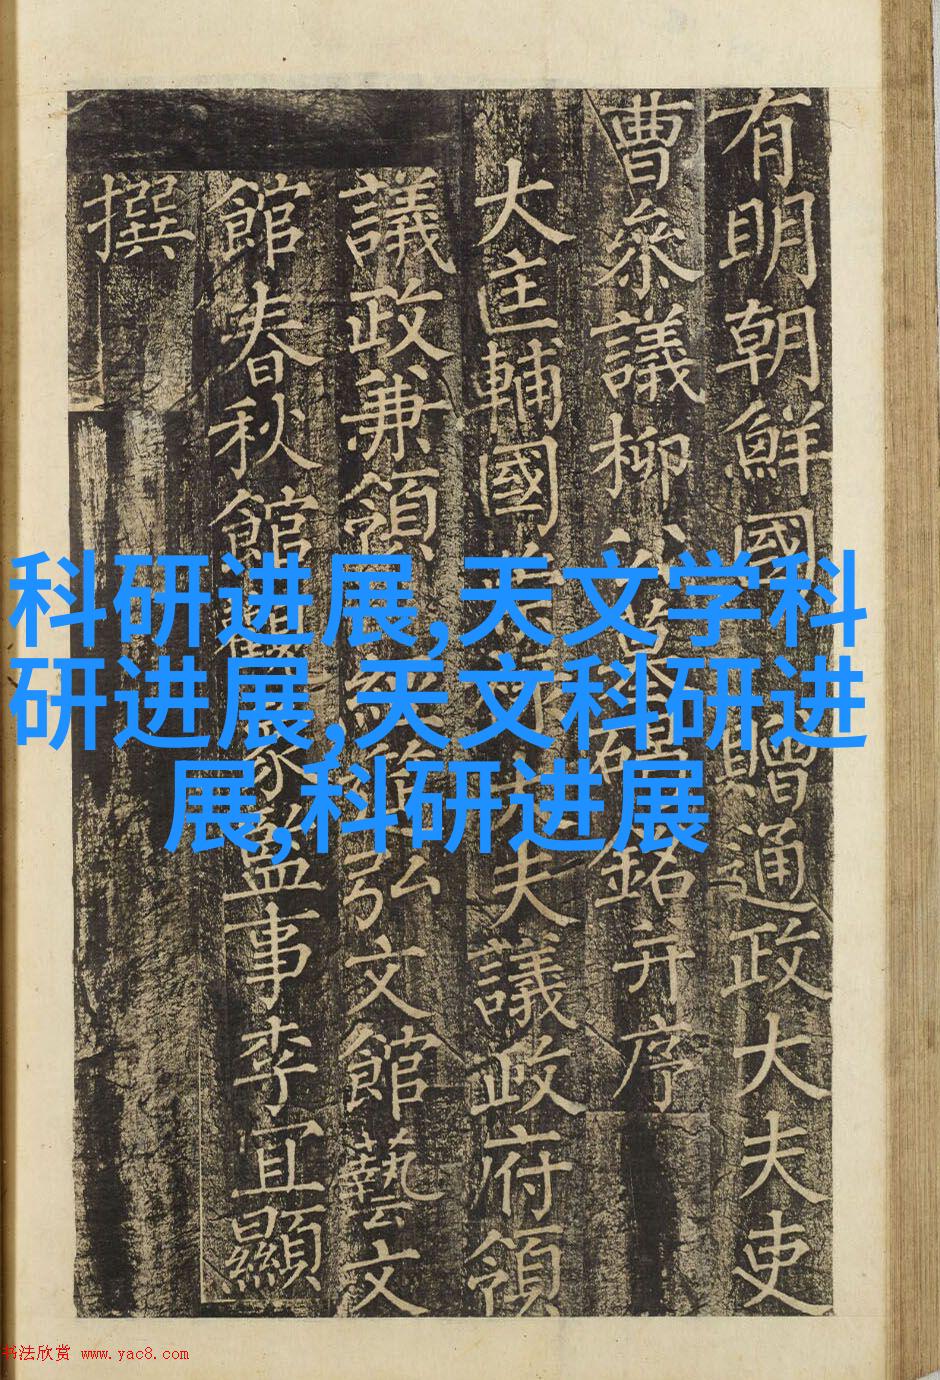 有明朝鮮國贈通政大夫吏
曹叅議柳公墓碣銘并序
大匡輔國崇祿大夫議政府領
議政兼領經筵弘文館藝文
館春秋館觀象監事李宜顯
撰
科研进展,天文学科
研进展,天文科研进
展,科研进展
书法欣赏 www.yac8.com